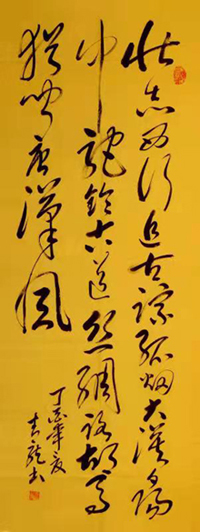 壮志西行追古踪孤烟大漠夕陽
中驼铃古道丝绸路胡马
犹闻唐漢风
丁酉年夏